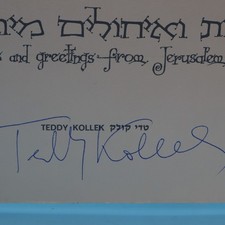 ואיחולים
and greetings from Jerusalem
TEDDY KOLLEK טדי קולק
Teddy Kollek